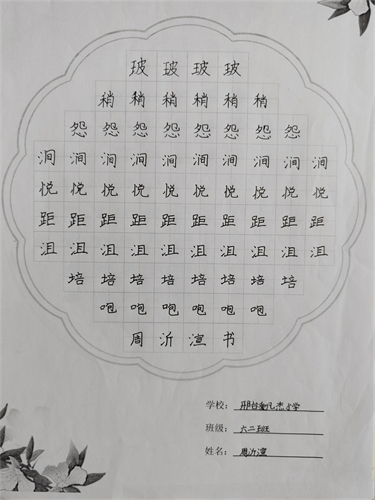 玻玻玻玻
稍稍稍稍稍稍
怨怨怨怨怨怨怨怨
涧涧涧涧涧涧涧涧涧涧
悦悦悦悦悦悦悦悦悦悦
距距距距距距距距距距
沮沮沮沮沮沮沮沮沮沮
培培培培培培培培
咆咆咆咆咆咆
周沂渲书
学校：邢台小学
班级：六二班
姓名：周沂渲